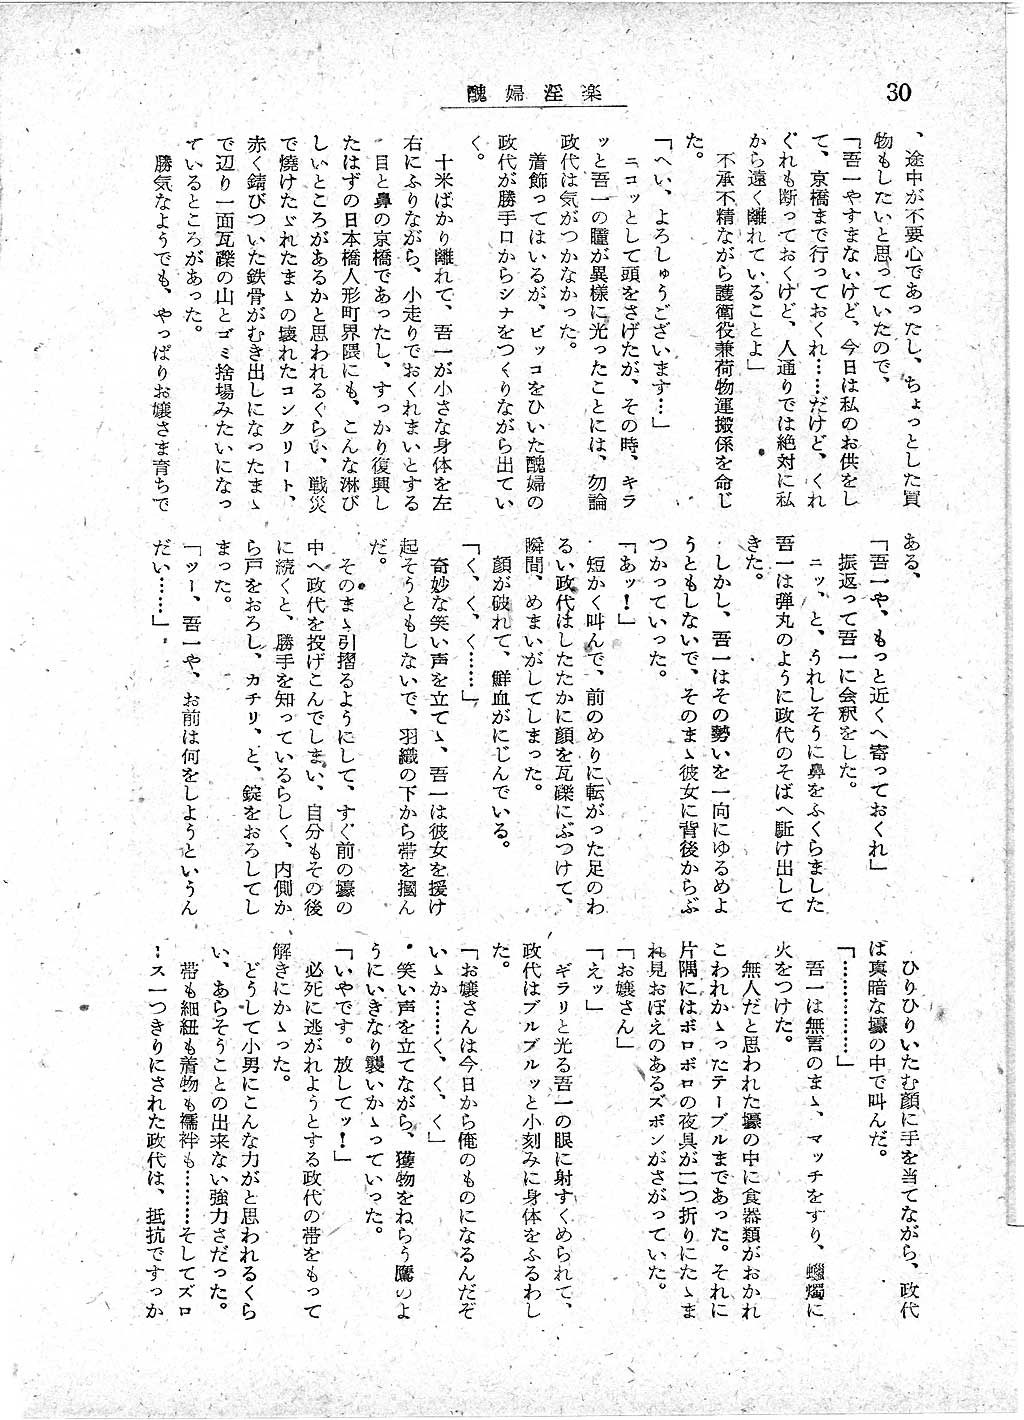 30
醜婦淫楽
、途中が不要心であったし、ちょっとした買
物もしたいと思っていたので、
「吾一やすまないけど、今日は私のお供をし
て、京橋まで行っておくれ……だけど、くれ
ぐれも断っておくけど、人通りでは絶対に私
から遠く離れていることよ」
不承不精ながら護衛役兼荷物運搬係を命じ
た。
「へい、よろしゅうございます…」
ニコッとして頭をさげたが、その時、キラ
ッと吾一の瞳が異様に光ったことには、勿論
政代は気がつかなかった。
着飾ってはいるが、ビッコをひいた醜婦の
政代が勝手口からシナをつくりながら出てい
く。
十米ばかり離れて、吾一が小さな身体を左
右にふりながら、小走りでおくれまいとする
目と鼻の京橋であったし、すっかり復興し
たはずの日本橋人形町界隈にも、こんな淋び
しいところがあるかと思われるぐらい、戦災
で焼けたゞれたまゝの壊れたコンクリート、
赤く錆びついた鉄骨がむき出しになったまゝ
で辺り一面瓦礫の山とゴミ捨場みたいになっ
ているところがあった。
勝気なようでも、やっぱりお嬢さま育ちで
ある、
「吾一や、もっと近くへ寄っておくれ」
振返って吾一に会釈をした。
ニッ、と、うれしそうに鼻をふくらました
吾一は弾丸のように政代のそばへ駈け出して
きた。
しかし、吾一はその勢いを一向にゆるめよ
うともしないで、そのまゝ彼女に背後からぶ
つかっていった。
「あッ！」
短かく叫んで、前のめりに転がった足のわ
るい政代はしたたかに顔を瓦礫にぶつけて、
瞬間、めまいがしてしまった。
顔が破れて、鮮血がにじんでいる。
「く、く、く……」
奇妙な笑い声を立てゝ、吾一は彼女を援け
起そうともしないで、羽織の下から帯を摑ん
だ。
そのまゝ引摺るようにして、すぐ前の壕の
中へ政代を投げこんでしまい、自分もその後
に続くと、勝手を知っているらしく、内側か
ら戸をおろし、カチリ、と、錠をおろしてし
まった。
「ッー、吾一や、お前は何をしようというん
だい……」
ひりひりいたむ顔に手を当てながら、政代
は真暗な壕の中で叫んだ。
「…………」
吾一は無言のまゝ、マッチをすり、蠟燭に
火をつけた。
無人だと思われた壕の中に食器類がおかれ
こわれかゝったテーブルまであった。それに
片隅にはボロボロの夜具が二つ折りにたゝま
れ見おぼえのあるズボンがさがっていた。
「お嬢さん」
「えッ」
ギラリと光る吾一の眼に射すくめられて、
政代はブルブルッと小刻みに身体をふるわし
た。
「お嬢さんは今日から俺のものになるんだぞ
いゝか……く、く、く」
笑い声を立てながら、獲物をねらう鷹のよ
うにいきなり襲いかゝっていった。
「いやです。放してッ！」
必死に逃がれようとする政代の帯をもって
解きにかゝった。
どうして小男にこんな力がと思われるくら
い、あらそうことの出来ない強力さだった。
帯も細紐も着物も襦袢も………そしてズロ
ース一つきりにされた政代は、抵抗ですっか